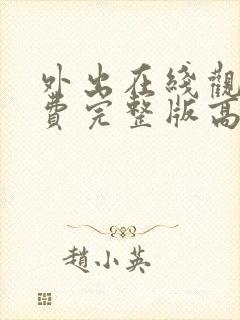 外出在綫觀
費完整版高
趙小英